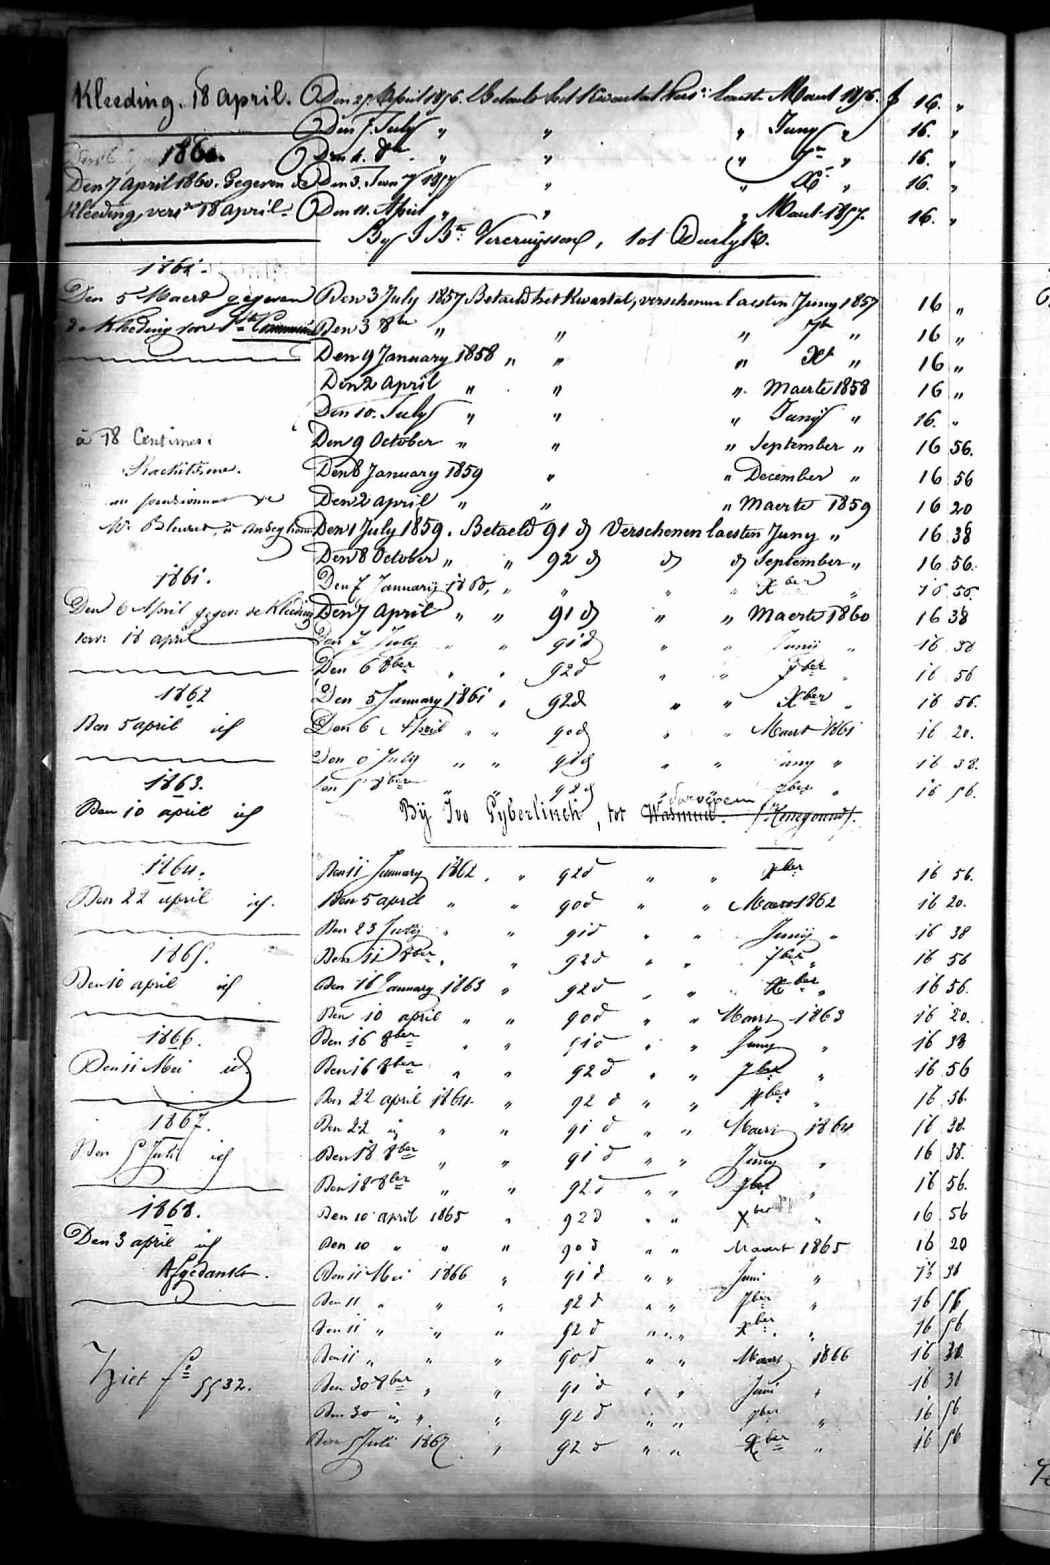 Kleeding. 18 April.
1860.
Den 7 April 1860. Gegeven de
Kleeding, vers. 18 april.
186
Den 5 Maert gegeven
de Kleeding voor
à 18 Centimes:
1861.
Den 6 April gegeven de Kleeding
vers: 18 april
1862
Den 5 april id
1863.
Den 10 april id
1864.
Den 22 april id.
1865.
Den 10 april id
1866.
Den 11 Mei id.
1867.
Den 5 Juli id
1868.
Den 3 april id
Afgedankt.
Ziet f° 5532.
Den 27 April 1856. Betaelt het Kwartael vers: laest. Maert 1856. f 16. "
Den 7. July " " " Juny " 16. "
Den 4. 8br " " " 7br " 16. "
Den 3. Jan 1857 " " Xbr " 16. "
Den 11. April " " " Maert 1857. 16. "
By J Bte Vercruyssen, tot Deerlyk.
Den 3 July 1857 Betaeld het Kwartael, verschenen laesten Juny 1857 16 "
Den 3 8bre " " " 7br " 16 "
Den 9 January 1858 " " " Xbr " 16 "
Den 2 April " " " Maerte 1858 16 "
Den 10. July " " " Juny " 16. "
Den 9 October " " " September " 16 56.
Den 8 January 1859 " " December " 16 56
Den 2 april " " " Maerte 1859 16 20
Den 1 July 1859. Betaeld 91 d Verschenen laesten Juny " 16 38
Den 8 October " " 92 d d d September " 16 56.
Den 7 January 1860, " " " Xber " 16 56.
Den 7 April " " 91 d " " Maerte 1860 16 38
Den 7 July " " 91 d " " Junij " 16 38
Den 6 8ber " " 92 d " " 7ber " 16 56
Den 5 January 1861 " 92 d " " Xber " 16 56.
Den 6 April " " 90 d " " Maert 1861 16 20.
Den 6 July " " 91 d " " Juny " 16 38.
Den 5 8ber 92 d " 7ber " 16 56.
Bij Ivo Gyberlinch, tot
Den 11 January 1862 " " 92 d " " Xber 16 56.
Den 5 april " " 90 d " " Maert 1862 16 20.
Den 23 July " " 91 d " " Junij " 16 38
Den 11 8ber " " 92 d " " 7ber " 16 56
Den 16 January 1863 " 92 d " " Xber " 16 56.
Den 10 april " " 90 d " " Maert 1863 16 20.
Den 16 8ber " " 91 d " " Juny " 16 38
Den 16 8ber " " 92 d " " 7ber " 16 56
Den 22 april 1864. " 92 d " " Xber " 16 56.
Den 22 id " " 91 d " " Maert 1864 16 38.
Den 18 8ber " " 91 d " " Juny " 16 38.
Den 18 8ber " " 92 d " " 7ber " 16 56.
Den 10 april 1865 " 92 d " " Xber " 16 56
Den 10 " " " 90 d " " Maart 1865 16 20
Den 11 Mei 1866 " 91 d " " Juni " 16 38
Den 11 " " " 92 d " " 7ber " 16 56
Den 11 " " " 92 d " " Xber " 16 56
Den 11 " " " 90 d " " Maart 1866 16
Den 30 8ber " " 91 d " " Juni " 16 38
Den 30 id " " 92 d " " 7ber " 16 56
Den 5 Juli 1867 " 92 d " " Xber " 16 56